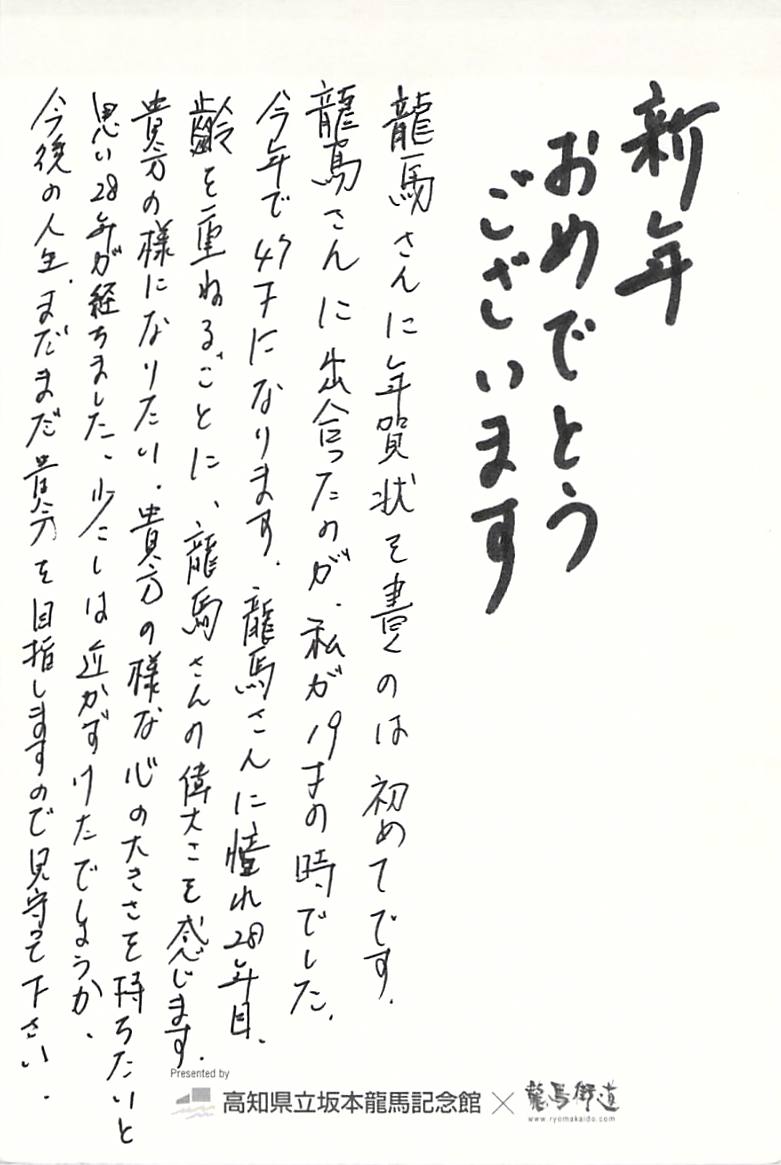 新年
おめでとう
ございます
龍馬さんに年賀状を書くのは初めてです.
龍馬さんに出会ったのが、私が19才の時でした.
今年で47才になります. 龍馬さんに憧れ28年目.
齢を重ねるごとに、龍馬さんの偉大さを感じます.
貴方の様になりたい. 貴方の様な心の大きさを持ちたいと
思い28年が経ちました. 少こしは近かずけたでしょうか.
今後の人生. まだまだ貴方を目指しますので見守って下さい.
Presented by
高知県立坂本龍馬記念館×龍馬街道
www.ryomakaido.com